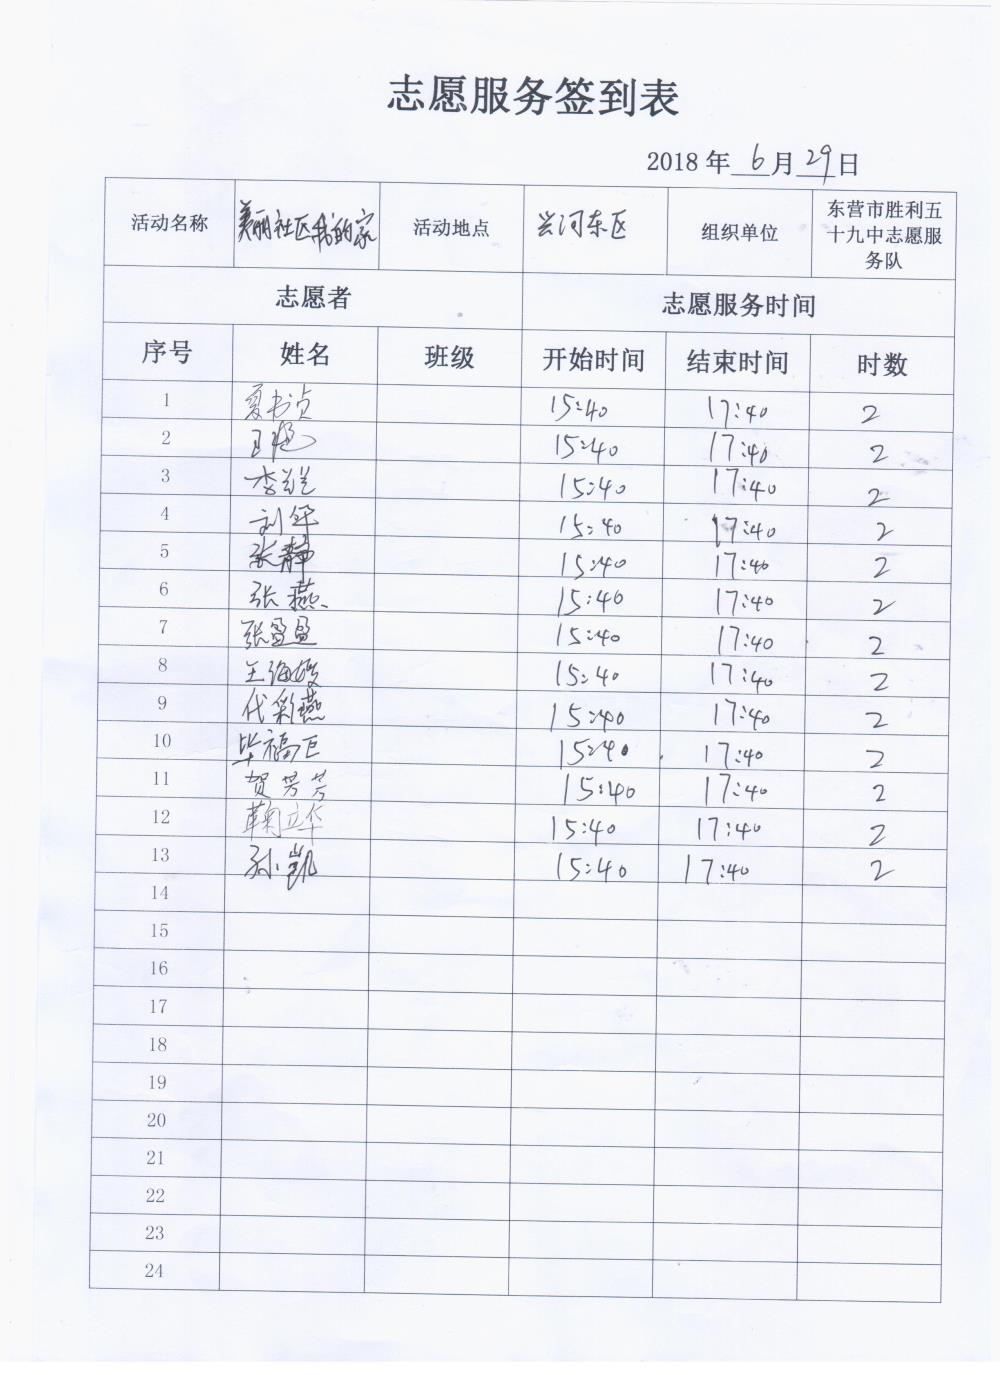 志愿服务签到表
2018 年 6 月 29 日
活动名称 美丽社区我的家 活动地点 兴河东区 组织单位 东营市胜利五
十九中志愿服
务队
志愿者 志愿服务时间
序号 姓名 班级 开始时间 结束时间 时数
1 夏书贞 15:40 17:40 2
2 15:40 17:40 2
3 15:40 17:40 2
4 刘华 15:40 17:40 2
5 张静 15:40 17:40 2
6 张燕 15:40 17:40 2
7 张盈盈 15:40 17:40 2
8 15:40 17:40 2
9 代彩燕 15:40 17:40 2
10 毕福巨 15:40 17:40 2
11 贺芳芳 15:40 17:40 2
12 鞠立华 15:40 17:40 2
13 孙凯 15:40 17:40 2
14
15
16
17
18
19
20
21
22
23
24